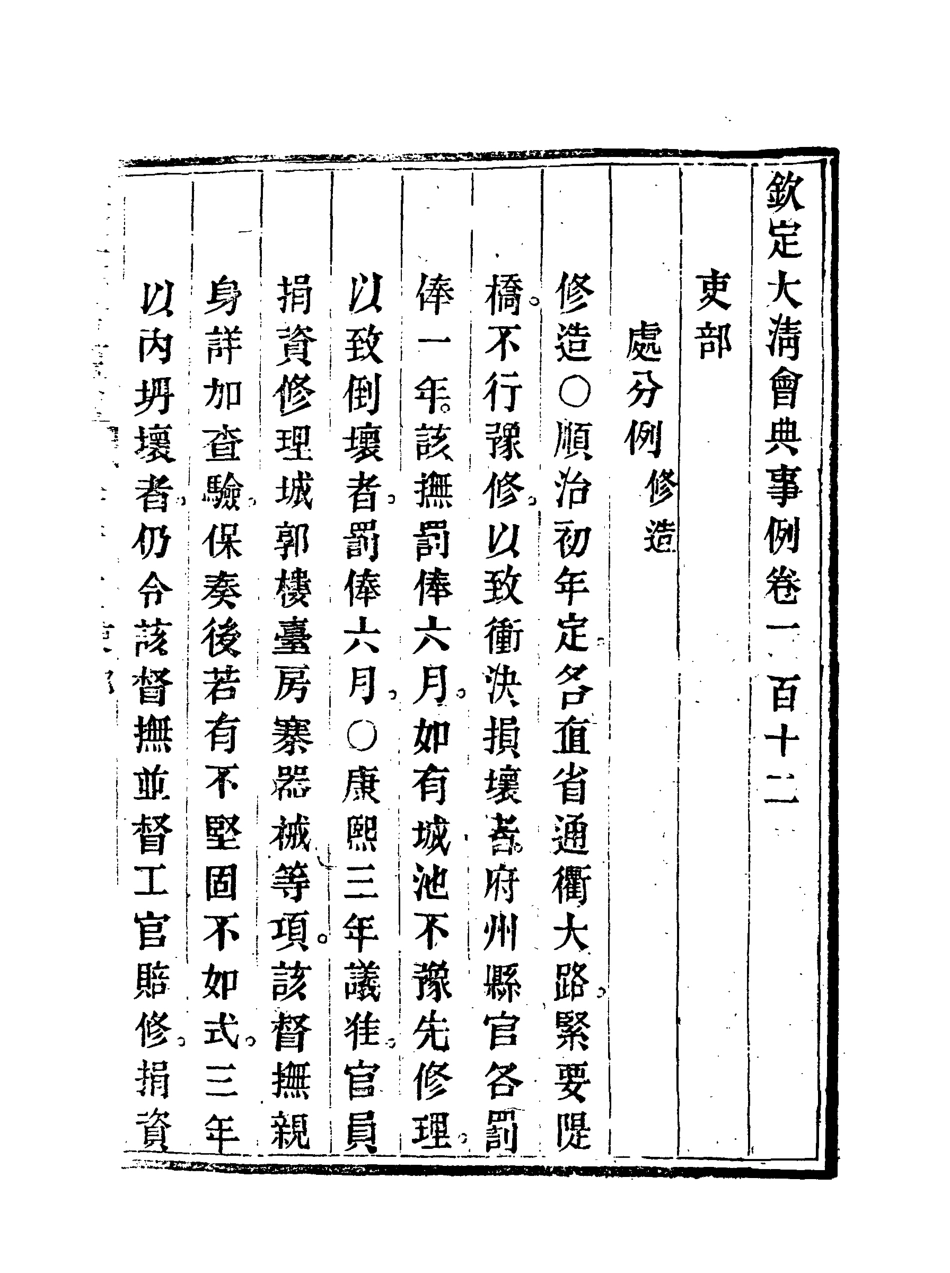 欽定大淸會典事例卷一百十二
吏部
處分例 修造
修造○順治初年定各直省通衢大路。緊要隄
橋。不行豫修。以致衝決損壞者。府州縣官各罰
俸一年。該撫罰俸六月。如有城池不豫先修理。
以致倒壞者。罰俸六月。○康熙三年議准。官員
捐資修理城郭樓臺房寨器械等項。該督撫親
身詳加查驗。保奏後若有不堅固不如式。三年
以內坍壞者。仍令該督撫並督工官賠修。捐資